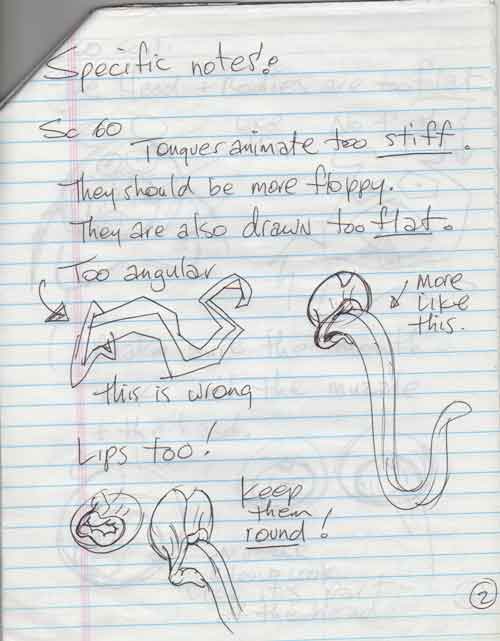 Specific notes:
Sc 60
Tongues animate too stiff.
They should be more floppy.
They are also drawn too flat.
Too angular
More
Like
this.
this is wrong
Lips too!
keep
them
round!
2